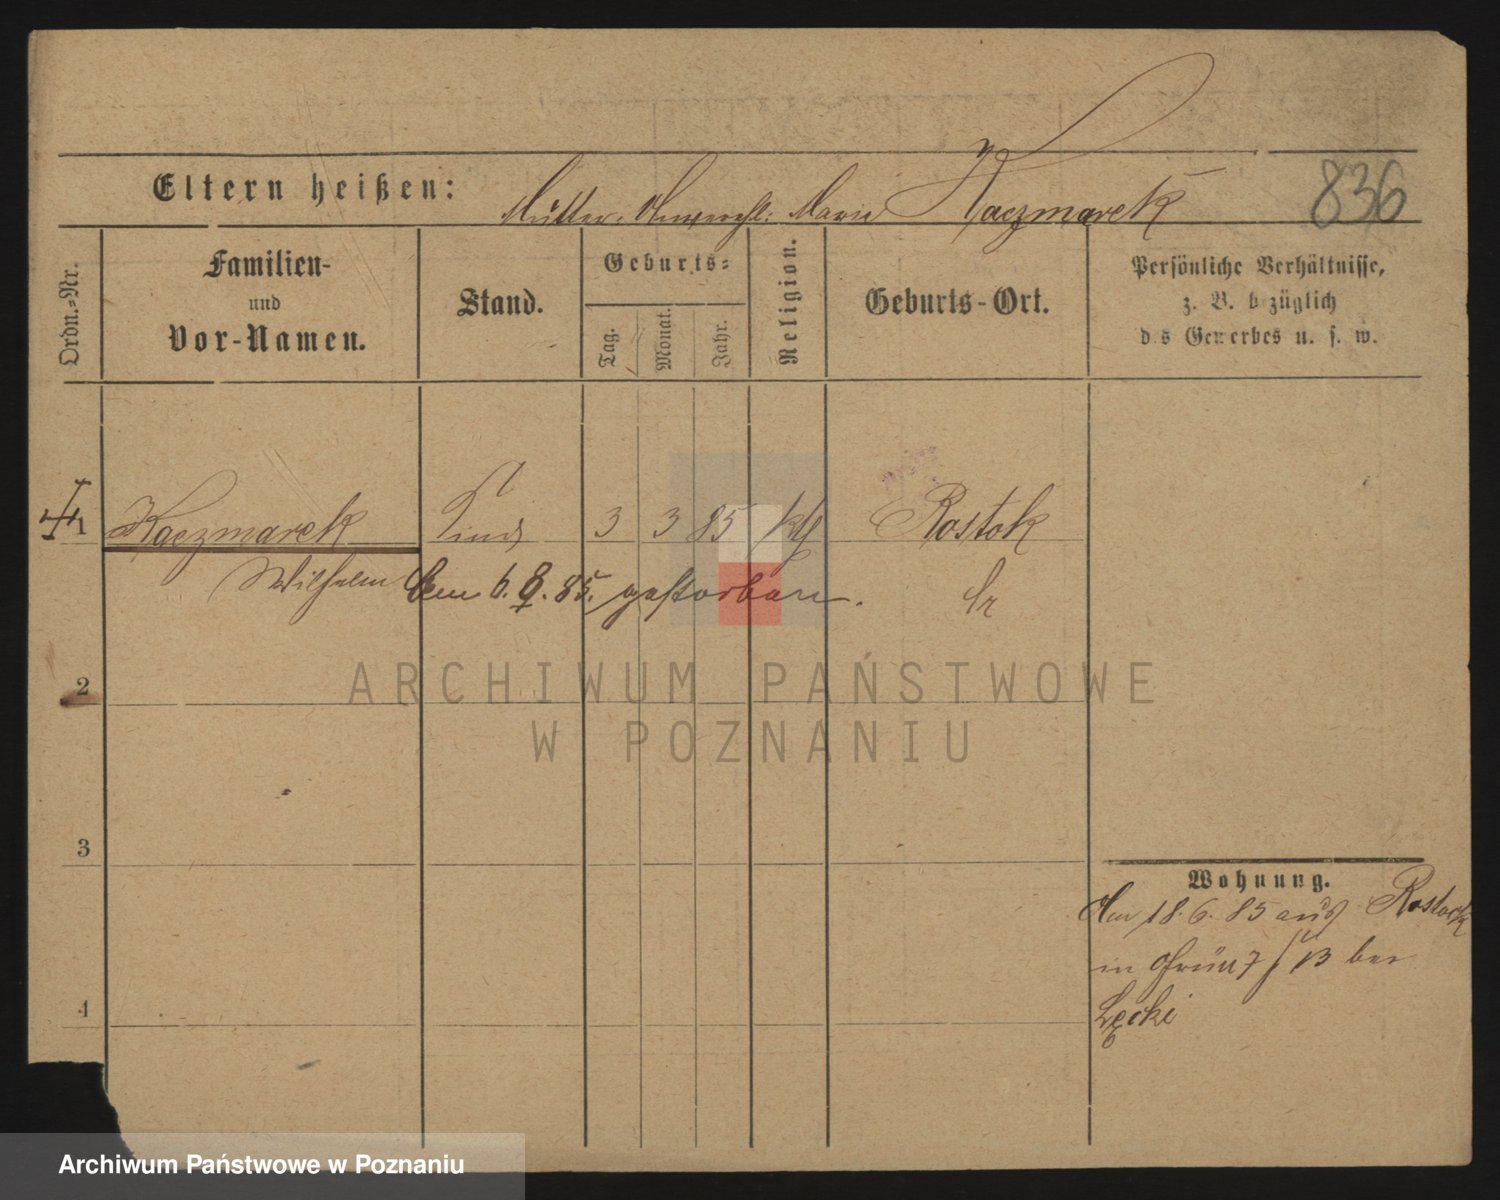 Eltern heißen: Mutter: Unverehl. Marie Kaczmarek 836
Ordn.-Nr.
Familien-
und
Vor-Namen.
Stand.
Geburts-
Tag.
Monat.
Jahr.
Religion.
Geburts-Ort.
Persönliche Verhältnisse,
z. B. bezüglich
des Gewerbes u. s. w.
1 Kaczmarek Kind 3 3 85 kth Rostok
Wilhelm Am 6. 8. 85. gestorben.
2
3
4
Wohnung.
Am 18. 6. 85 aus Rostock
in 7 / 13 bei
Łęcki
ARCHIWUM PAŃSTWOWE
W POZNANIU
Archiwum Państwowe w Poznaniu